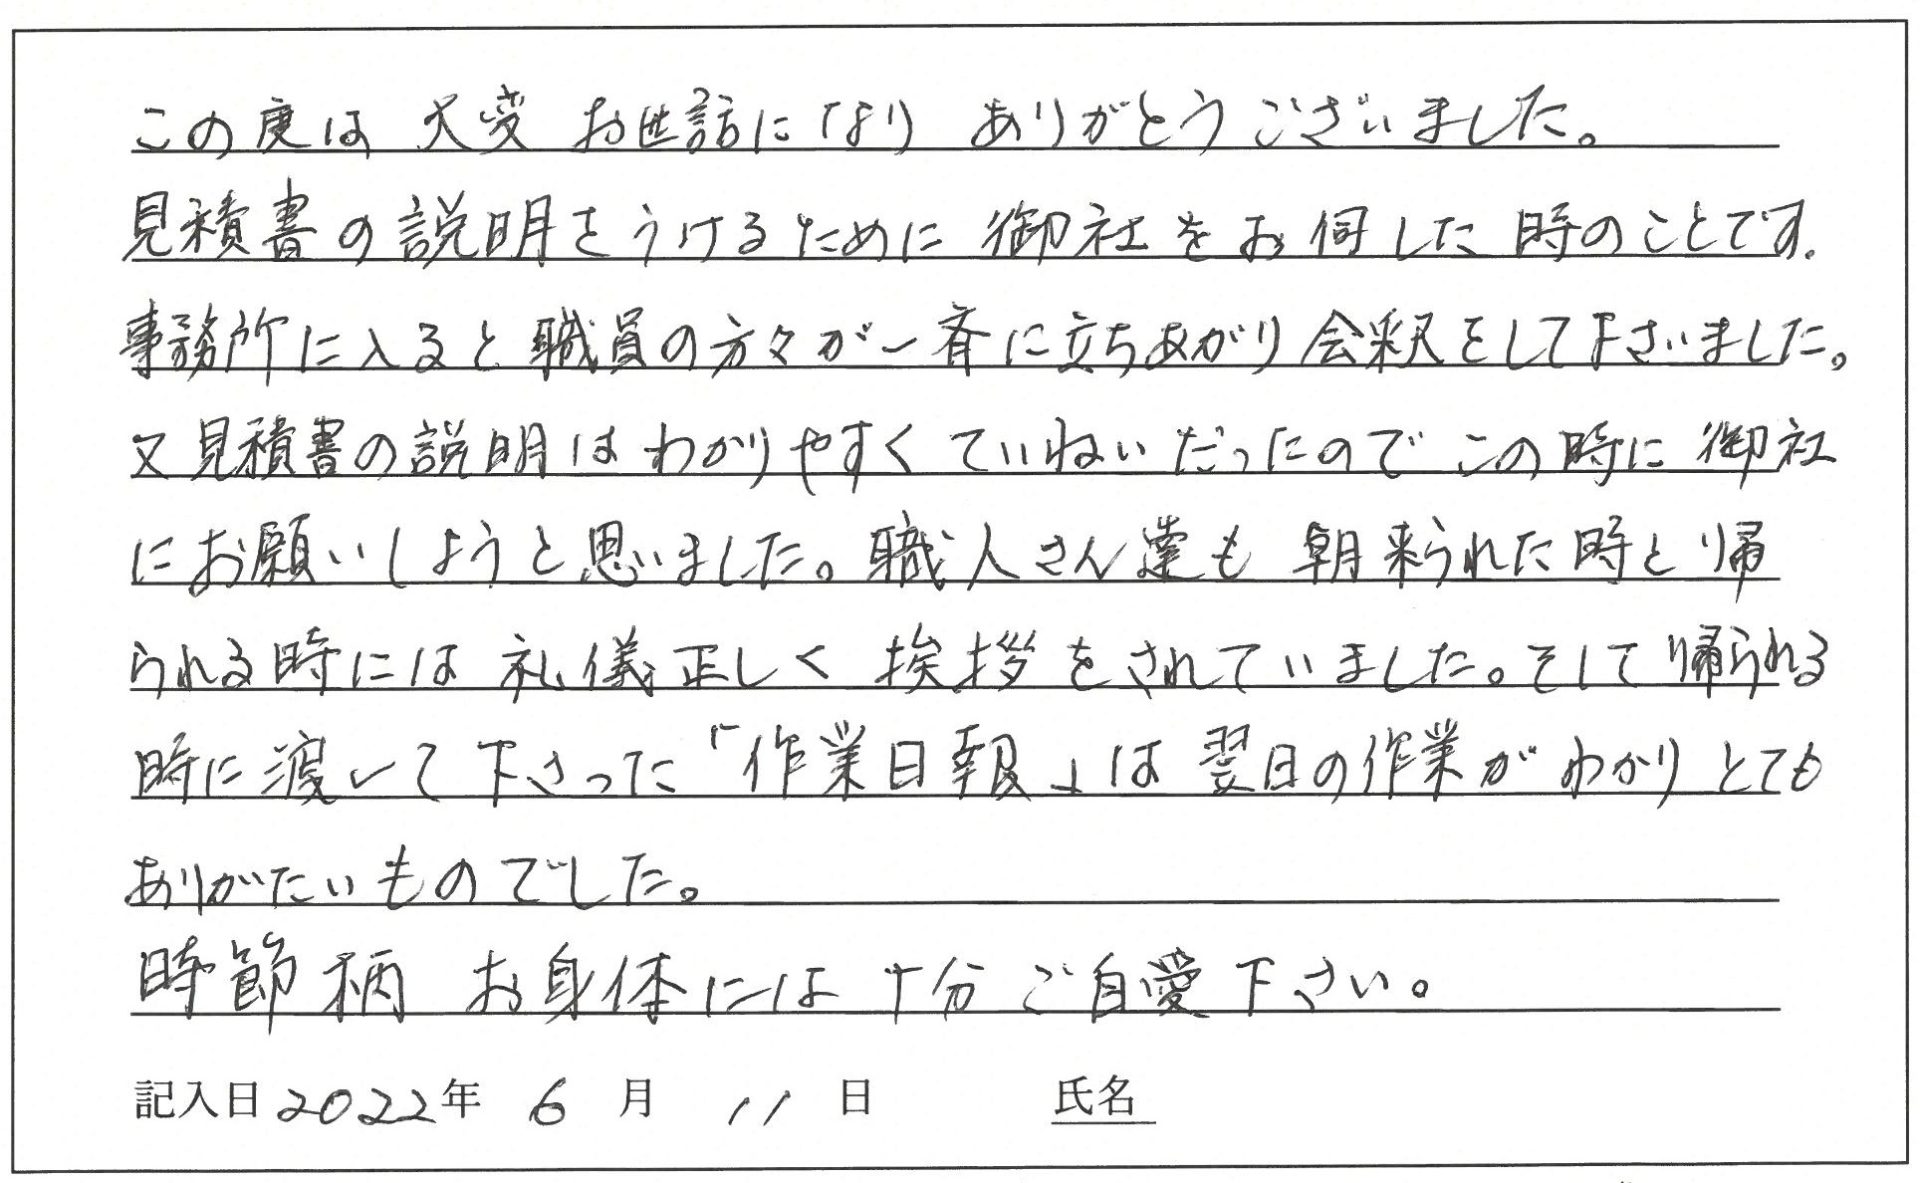 この度は 大変 お世話になり ありがとうございました。
見積書の説明をうけるために 御社をお伺した時のことです.
事務所に入ると職員の方々が一斉に立ちあがり会釈をして下さいました。
又見積書の説明はわかりやすくていねいだったのでこの時に御社
にお願いしようと思いました。職人さん達も 朝来られた時と帰
られる時には礼儀正しく 挨拶をされていました。そして帰られる
時に渡して下さった「作業日報」は翌日の作業がわかりとても
ありがたいものでした。
時節柄 お身体には十分ご自愛下さい。
記入日 2022年 6月 11日 氏名